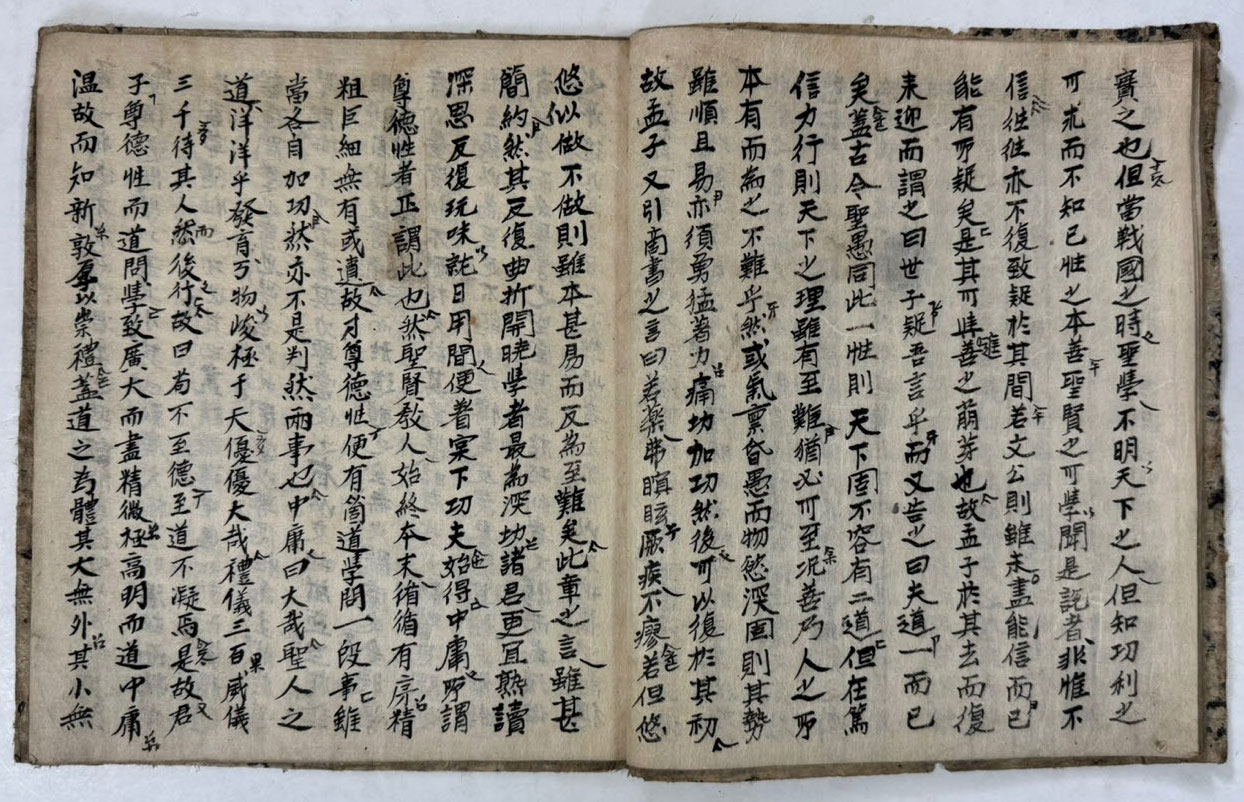 實之也但當戰國之時聖學不明天下之人但知功利之
可求而不知己性之本善聖賢之可學聞是説者非惟不
信往往亦不復致疑於其間若文公則雖未盡能信而已
能有所疑矣是其可與進善之萌芽也故孟子於其去而復
来迎而謂之曰世子疑吾言乎而又告之曰夫道一而已
矣盖古今聖愚同此一性則天下固不容有二道但在篤
信力行則天下之理雖有至難猶必可至况善乃人之所
本有而為之不難乎然或氣禀昏愚而物慾深固則其勢
雖順且易亦須勇猛著力痛功加功然後可以復於其初
故孟子又引商書之言曰若藥弗瞑眩厥疾不瘳若但悠
悠似做不做則雖本甚易而反為至難矣此章之言雖甚
簡約然其反復曲折開曉學者最為深切諸君更宜熟讀
深思反復玩味就日用間便着实下功夫始得中庸所謂
尊德性者正謂此也然聖賢教人始終本末循循有序精
粗巨細無有或遺故才尊德性便有箇道學問一段事雖
當各自加功然亦不是判然兩事也中庸曰大哉聖人之
道洋洋乎發育万物峻極于天優優大哉禮儀三百威儀
三千待其人然後行故曰苟不至德至道不凝焉是故君
子尊德性而道問學致廣大而盡精微極高明而道中庸
温故而知新敦厚以崇禮盖道之為體其大無外其小無